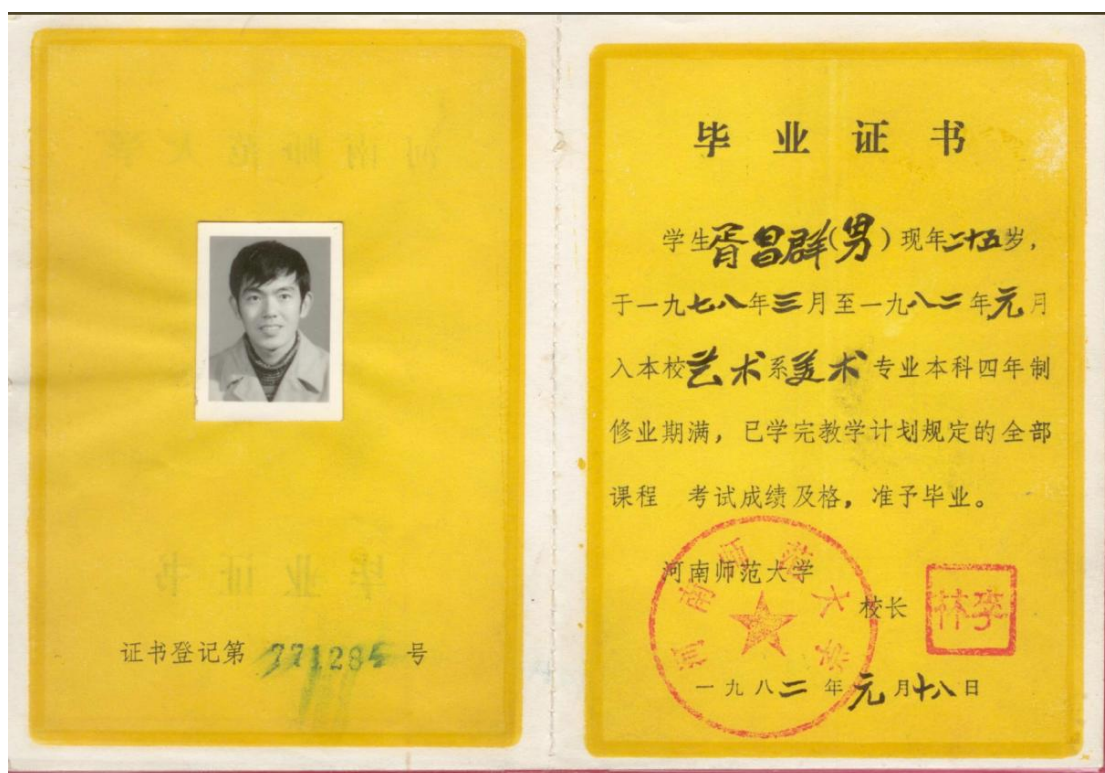 河南师范大学
毕业证书
证书登记第 771285 号
毕业证书
学生胥昌群(男)现年二十五岁,
于一九七八年三月至一九八二年元月
入本校艺术系美术专业本科四年制
修业期满,已学完教学计划规定的全部
课程 考试成绩及格,准予毕业。
河南师范大学
校长
李林
河南师范大学
一九八二年元月十八日